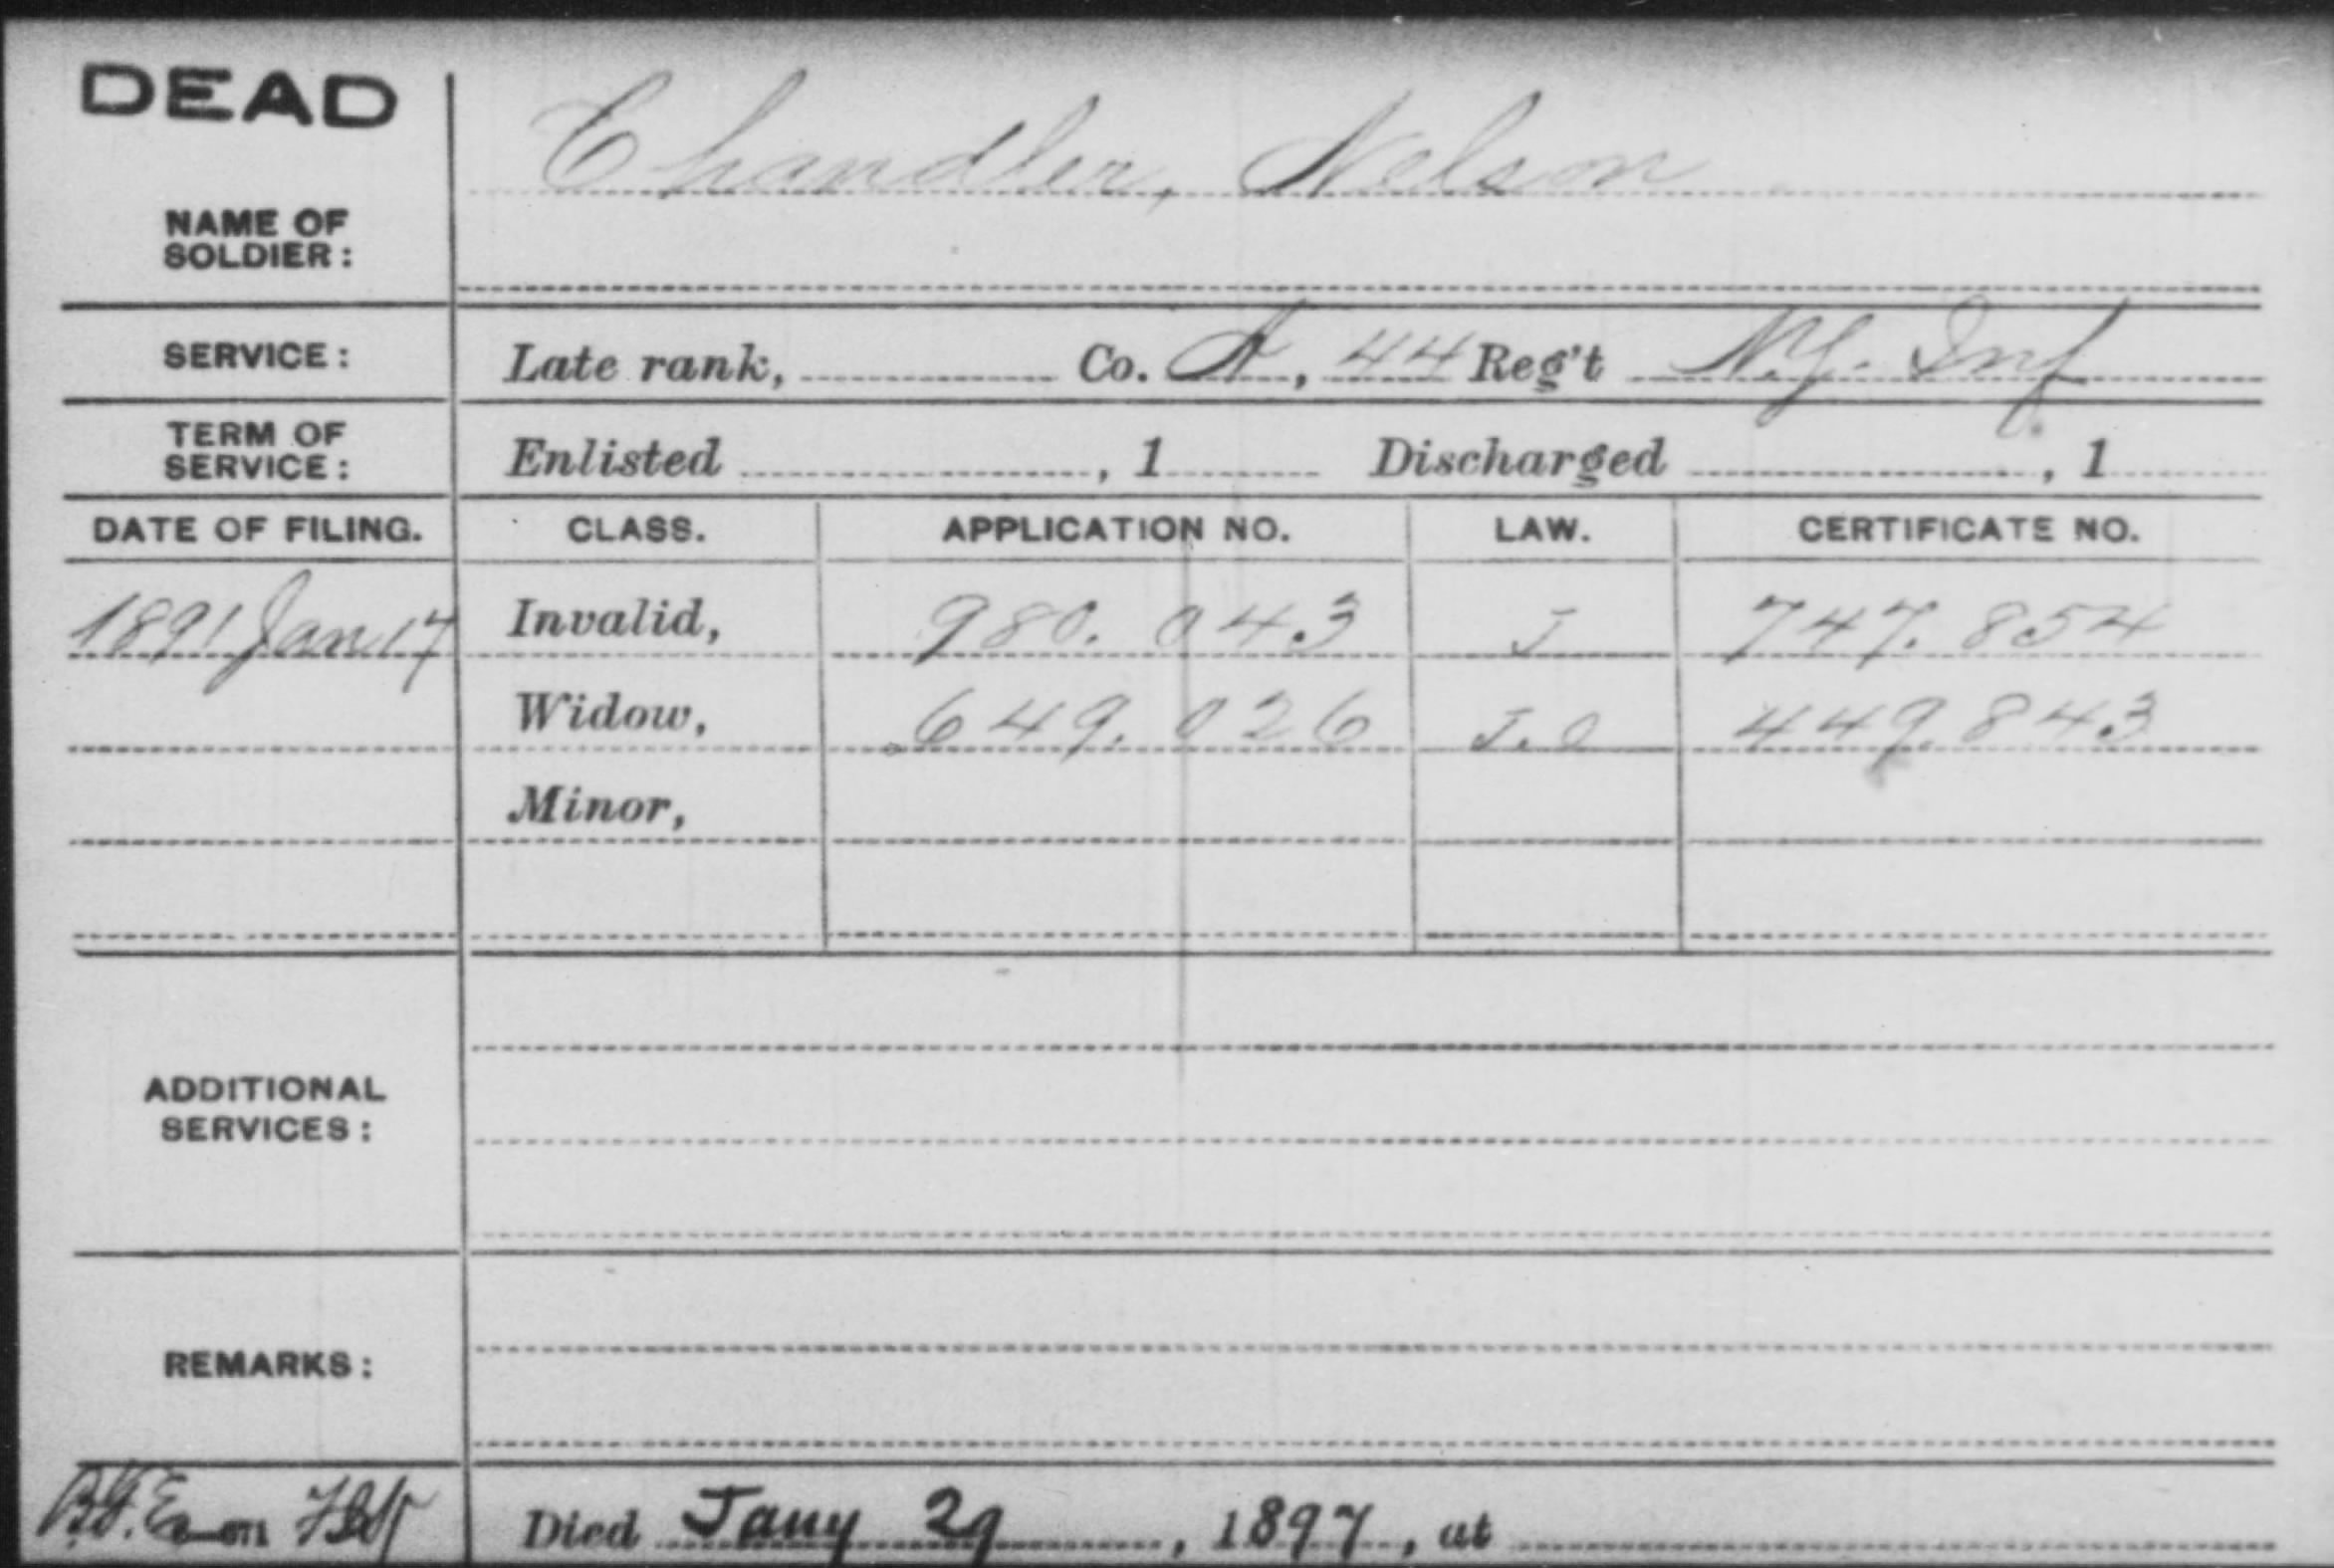 DEAD
Chandler, Nelson
NAME OF
SOLDIER:
SERVICE: Late rank, Co. A, 44 Reg't N.Y. Inf.
TERM OF
SERVICE: Enlisted , 1 Discharged , 1
DATE OF FILING. CLASS. APPLICATION NO. LAW. CERTIFICATE NO.
1891 Jan 17 Invalid, 980.043 J 747.854
Widow, 649.026 J.O 449.843
Minor,
ADDITIONAL
SERVICES:
REMARKS:
Died Jany 29, 1897, at